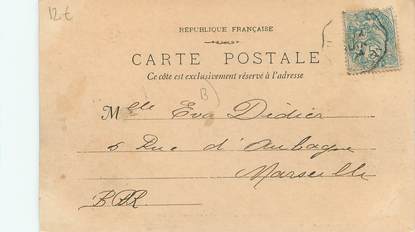 12 €
RÉPUBLIQUE FRANÇAISE
CARTE POSTALE
Ce côté est exclusivement réservé à l'adresse
B)
Mlle Eva Didier
6 Rue d'Aubagne
Marseille